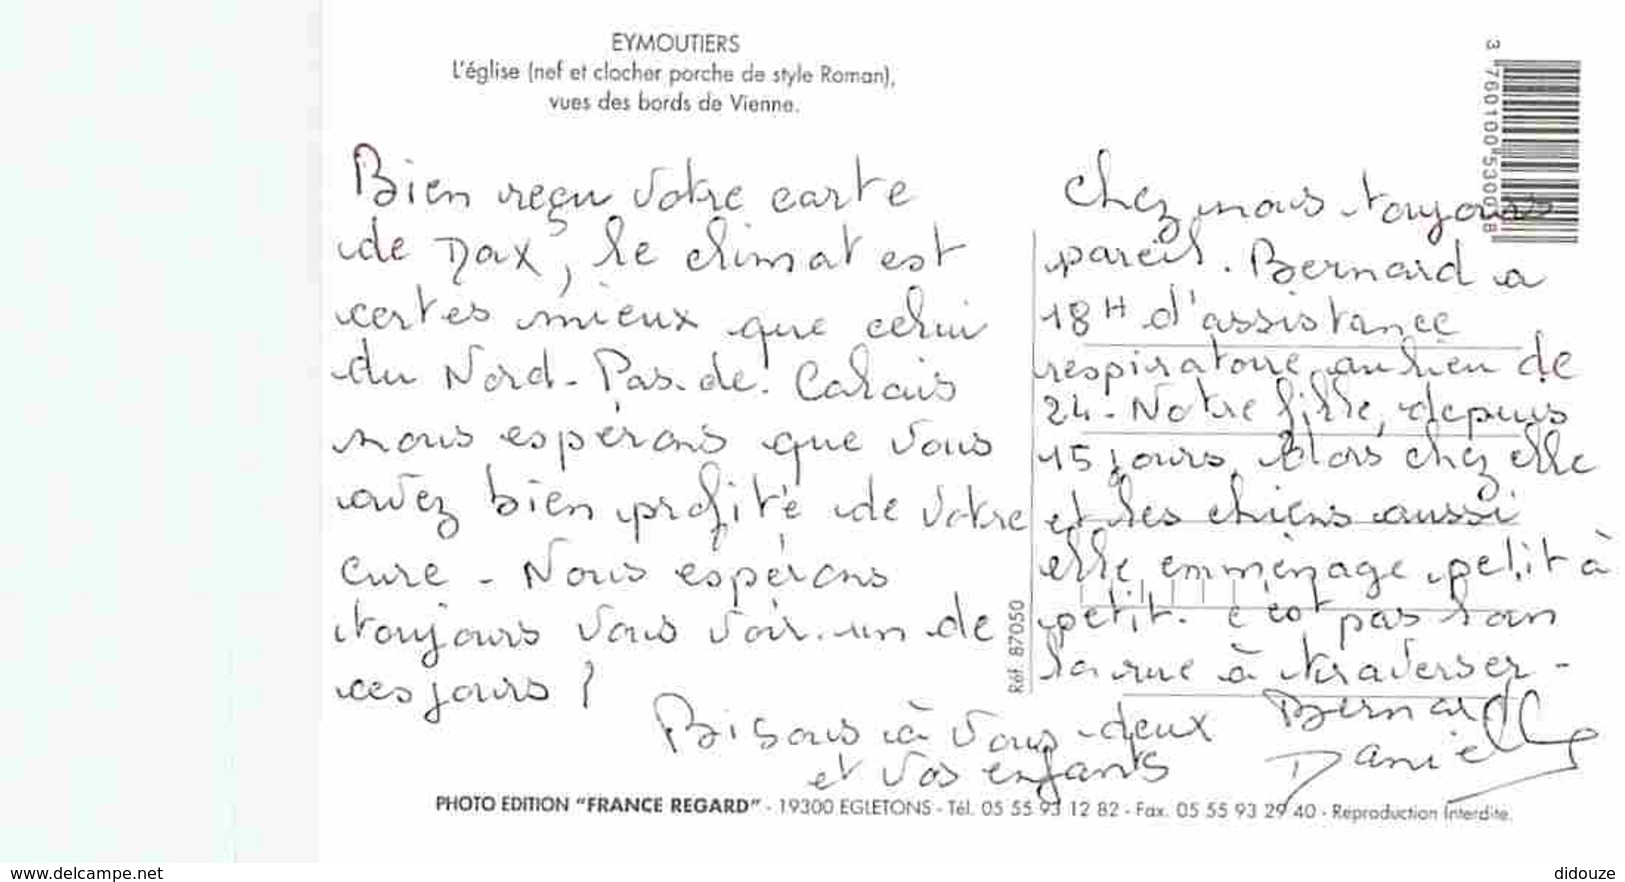 EYMOUTIERS
L'église (nef et clocher porche de style Roman),
vues des bords de Vienne.
3 760100 530058
Bien reçu votre carte
de Dax, le climat est
certes mieux que celui
du Nord-Pas-de-Calais
nous espérons que vous
avez bien profité de votre
cure - Nous espérons
toujours vous voir un de
ces jours !
Chez nous toujours
pareil. Bernard a
18H d'assistance
respiratoire au lieu de
24 - Notre fille, depuis
15 jours, alors chez elle
et les chiens aussi
elle emménage petit à
petit. c'est pas loin
la rue à traverser -
Bisous à vous deux
et vos enfants
Bernard
Danielle
Réf. 87050
PHOTO EDITION "FRANCE REGARD" - 19300 EGLETONS - Tél. 05 55 93 12 82 - Fax. 05 55 93 29 40 - Reproduction Interdite.
www.delcampe.net
didouze